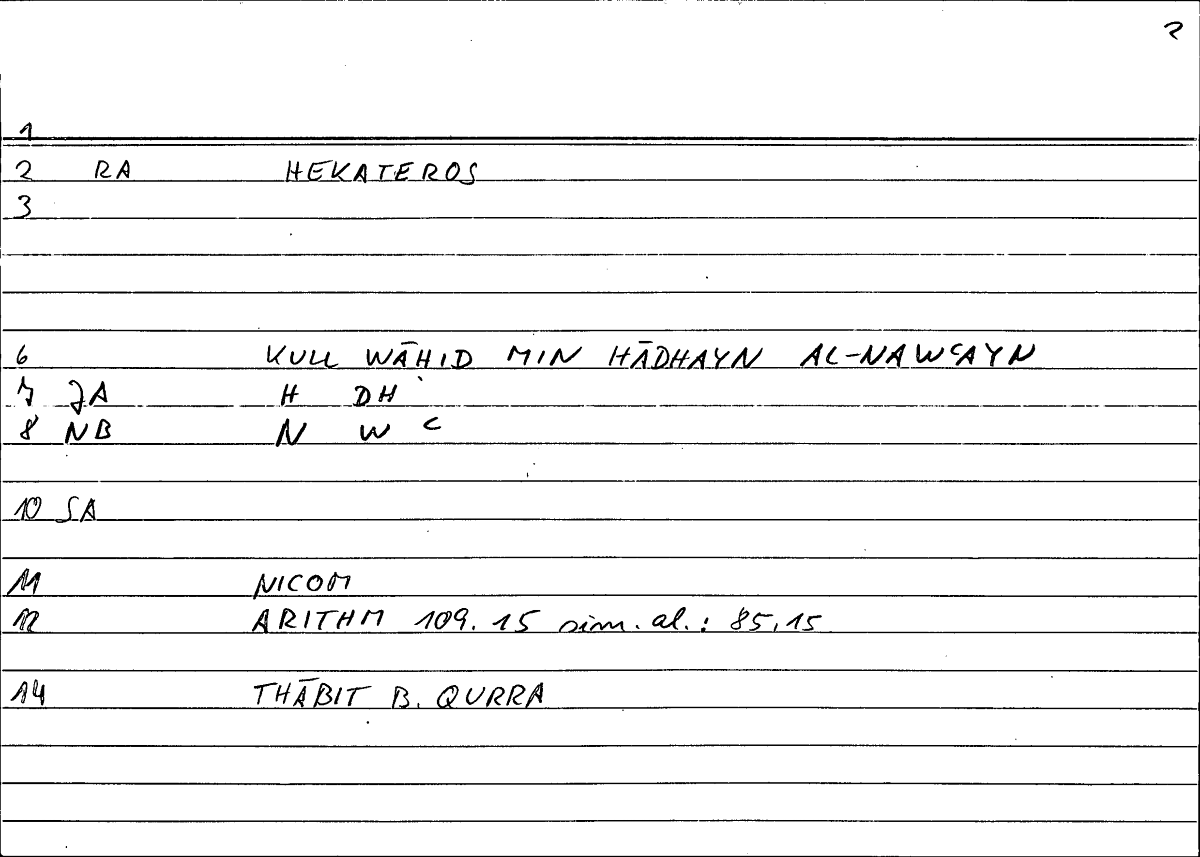 2
1
2 RA HEKATEROS
3
6 KULL WĀHID MIN HĀDHAYN AL-NAWꜤAYN
7 JA H DH
8 NB N W Ꜥ
10 SA
11 NICOM
12 ARITHM 109.15 sim. al.: 85,15
14 THĀBIT B. QURRA